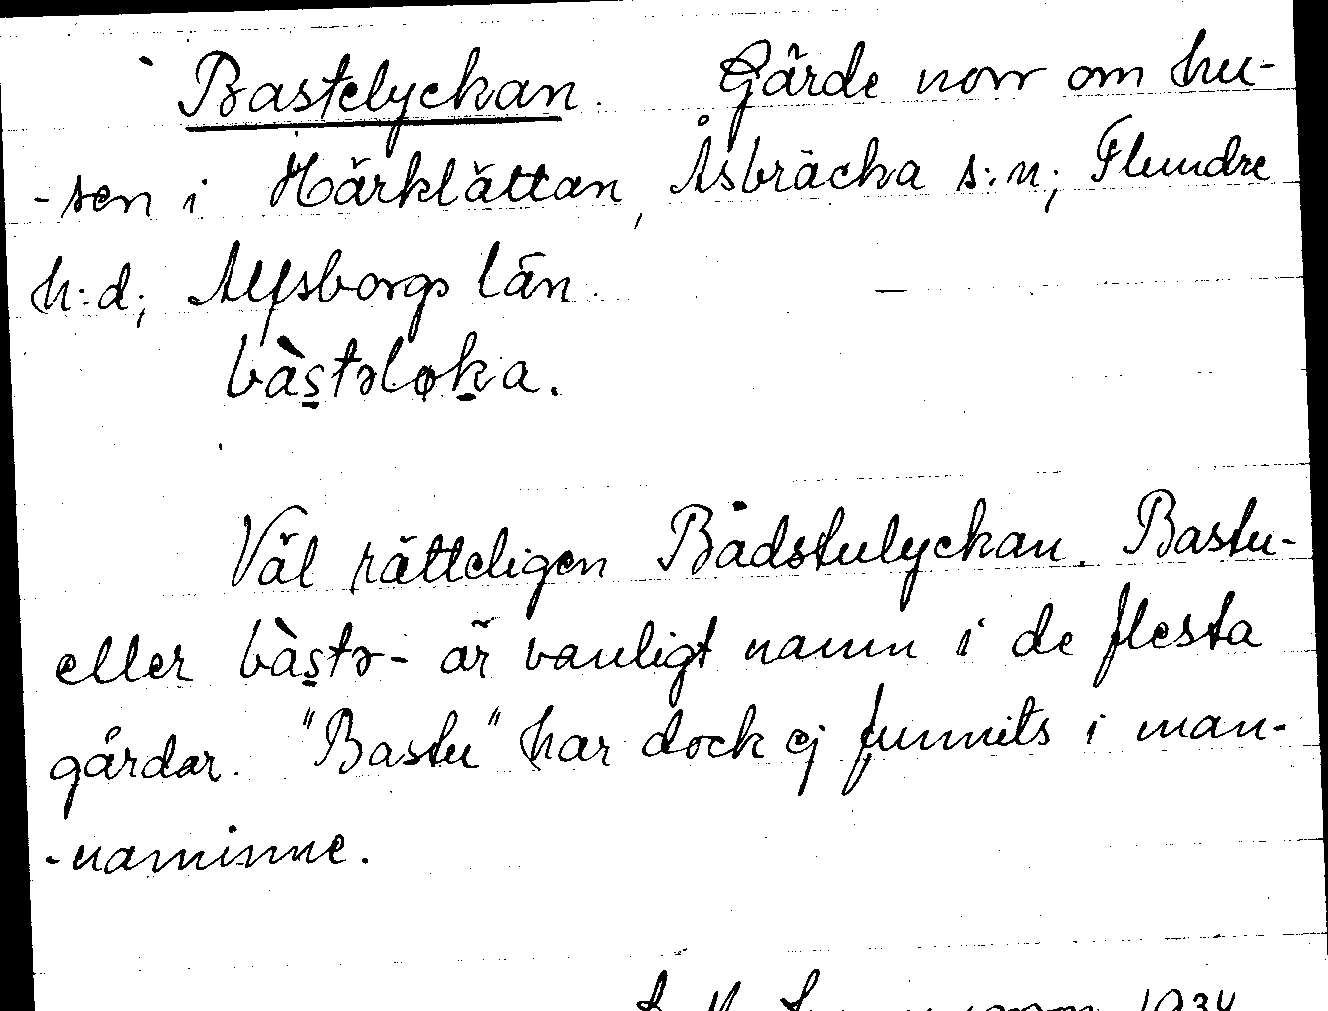 Bastelyckan. Gärde norr om hu-
-sen i Härklättan, Åsbräcka s:n; Flundre
h:d; Alfsborgs län. —
bàs̱təløḵa.
Väl rätteligen Bådstulyckan. Bastu-
eller bàs̱tə- är vanligt namn i de flesta
gårdar. "Bastu" har dock ej funnits i man-
-naminne.
1934